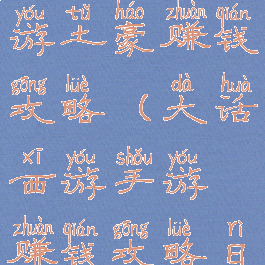 yóu tǔ háo zhuàn qián
游土豪赚钱
gōng lüè dà huà
攻略(大话
xī yóu shǒu yóu
西游手游
zhuàn qián gōng lüè rì
赚钱攻略日